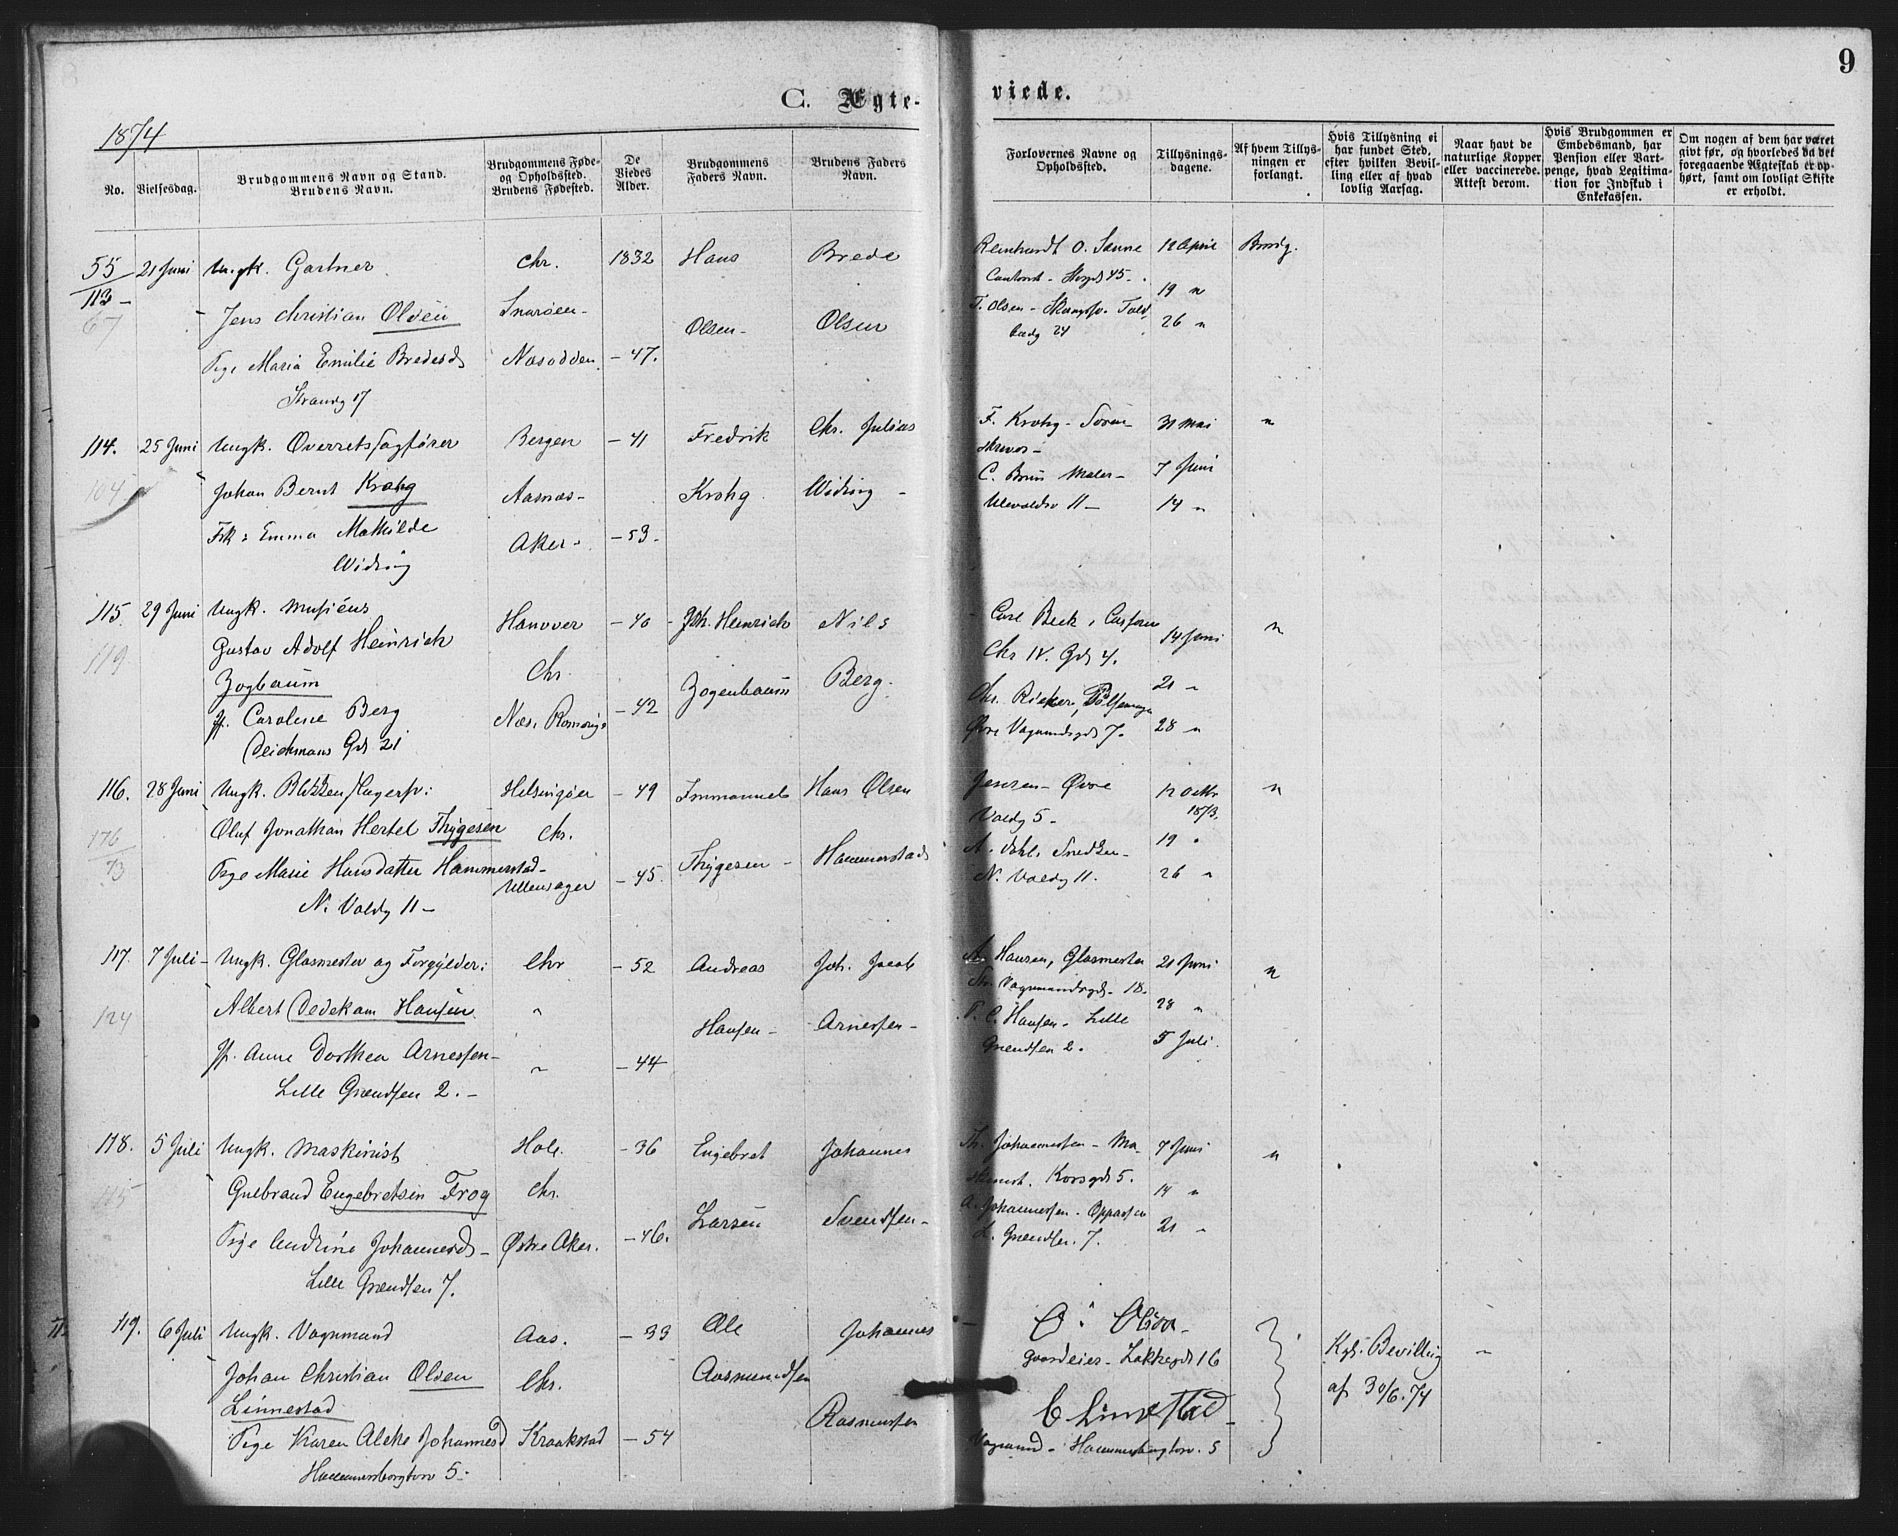 9
C. Ægte-
viede.
1874
No.
Vielsesdag.
Brudgommens Navn og Stand.
Brudens Navn.
Brudgommens Føde-
og Opholdssted.
Brudens Fødested.
De
Viedes
Alder.
Brudgommens
Faders Navn.
Brudens Faders
Navn.
Forlovernes Navne og
Opholdssted.
Tillysnings-
dagene.
Af hvem Tillys-
ningen er
forlangt.
Hvis Tillysning ei
har fundet Sted,
efter hvilken Bevil-
ling eller af hvad
lovlig Aarsag.
Naar havt de
naturlige Kopper
eller vaccinerede.
Attest derom.
Hvis Brudgommen er
Embedsmand, har
Pension eller Vart-
penge, hvad Legitima-
tion for Indskud i
Enkekassen.
Om nogen af dem har været
givt før, og hvorledes da det
foregaaende Ægteskab er op-
hørt, samt om lovligt Skifte
er erholdt.
55 21 Juni Ungk. Gartner Chr. 1832 Hans Brede
113
67
Jens Christian Olsen Snarøen Olsen Olsen
Pige Maria Emilie Bredesd Næsodden - 47.
Strandg 17
Reinhardt O. Sanne 12 April Brudg.
45 19 "
T. Olsen 26 "
24
114. 25 Juni Ungk. Overretssagfører Bergen - 41 Fredrik Chr. Julius
104
Johan Bernt Krohg Aasnæs Krohg Widing
Frk: Emma Mathilde Aker - 53
Widing
F. Krohg 31 Mai "
C. Bruun Maler 7 Juni
Ullevoldsv 11 14 "
115. 29 Juni Ungk. Musicus Hanover - 40 Joh. Heinrich Nils
119
Gustav Adolf Heinrich Chr.
Zogbaum Zogenbaum Berg
Jf. Caroline Berg Næs. Romerige - 42
Deichmans Gd 21
Carl Beck, 14 Juni "
Chr IV. Gd 4.
Chr. Ricker, Pølsemager 21 "
Øvre Vognmandsgd 7. 28 "
116. 28 Juni Ungk. Helsingøer - 49 Immanuel Hans Olsen
176
73
Oluf Jonathan Hertel Thygesen Chr.
Pige Marie Hansdatter Hammerstad Ullensager - 45. Thygesen Hammerstad
N. Voldg 11
Jensen Øvre 12 Octbr "
Voldg 5 1873.
A. Dahl. Snedker 19 "
N. Voldg 11. 26 "
117. 7 Juli Ungk. Glasmester og Forgylder: Chr - 52 Andreas Joh. Jacob
124
Albert Dedekam Hansen. " Hansen Arnessen
Jf. Anne Dorthea Arnessen " - 44
Lille Grændsen 2.
A. Hansen, Glasmester 21 Juni "
Vognmandsgd. 18. 28 "
P. C. Hansen. Lille
Grændsen 2. 5 Juli.
118. 5 Juli Ungk. Maskinist Hole. - 36 Engebret Johannes
115
Gulbrand Engebretsen Frog Chr. Larsen Svendsen
Pige Andrine Johannesd Østre Aker. - 46.
Lille Grændsen 7.
Th. Johannessen Ma- 7 Juni "
skinist. Korsgd 5. 14 "
A. Johannessen. Oppasser
L. Grændsen. 7. 21 "
119. 6 Juli Ungk. Vognmand Aas. - 33 Ole Johannes
Johan Christian Olsen Chr. Aasmundsen
Linnestad Rasmussen
Pige Karen Alette Johannesd Kraakstad - 54
Hammersborgtorv 5.
O. Olsen
Gaardeier - Lakkegd 16 Kgl. Bevilling "
af 30/6. 74
C Linnestad
Vognmd - Hammersborgtorv. 5